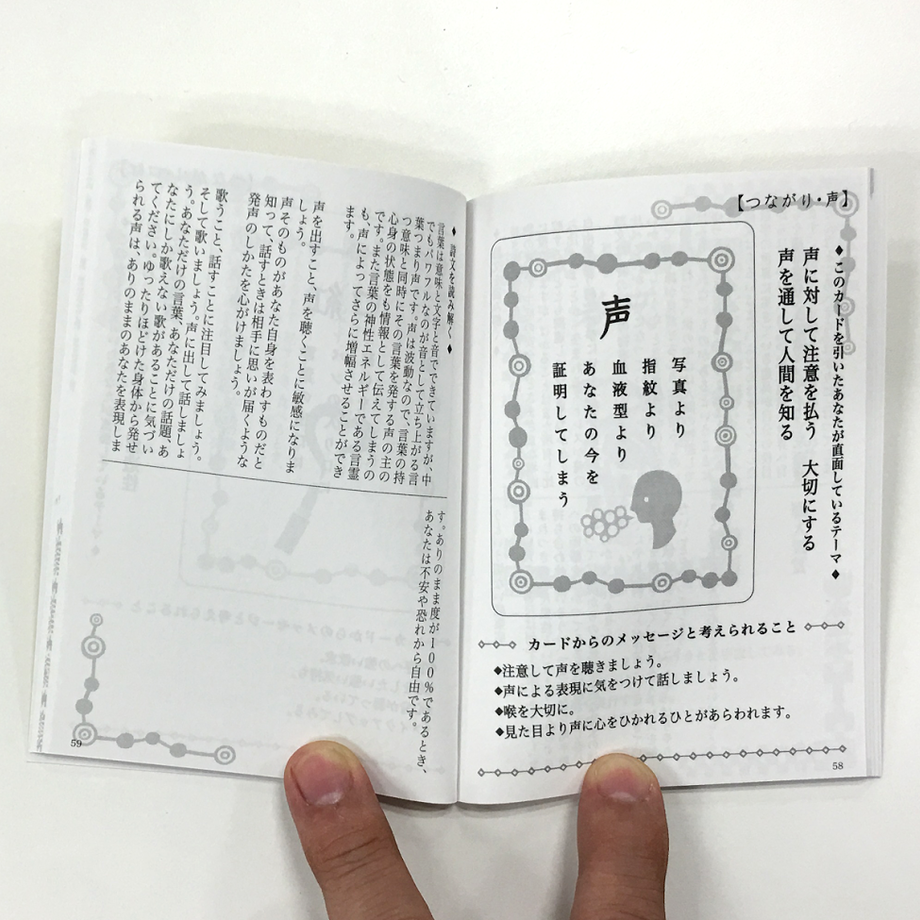 【つながり・声】
◆このカードを引いたあなたが直面しているテーマ◆
声に対して注意を払う　大切にする
声を通して人間を知る
声
写真より
指紋より
血液型より
あなたの今を
証明してしまう
カードからのメッセージと考えられること
◆注意して声を聴きましょう。
◆声による表現に気をつけて話しましょう。
◆喉を大切に。
◆見た目より声に心をひかれるひとがあらわれます。
58
◆ 詩文を読み解く ◆
言葉は意味と文字と音でできていますが、中
でもパワフルなのが音として立ち上がる言
葉つまり声です。声は波動なので、言葉の持
つ意味と同時にその言葉を発する声の主の
心身の状態をも情報として伝えてしまうの
です。また言葉の神性エネルギーである言霊
も、声によってさらに増幅させることができ
ます。
声を出すこと、声を聴くことに敏感になりま
しょう。
声そのものがあなた自身を表わすものだと
知って、話すときは相手に思いが届くような
発声のしかたを心がけましょう。
歌うこと、話すことに注目してみましょう。
そして歌いましょう。声に出して話しましょ
う。あなただけの言葉、あなただけの話題、あ
なたにしか歌えない歌があることに気づい
てください。ゆったりほどけた身体から発せ
られる声は、ありのままのあなたを表現しま
す。ありのまま度が100％であるとき、
あなたは不安や恐れから自由です。
59